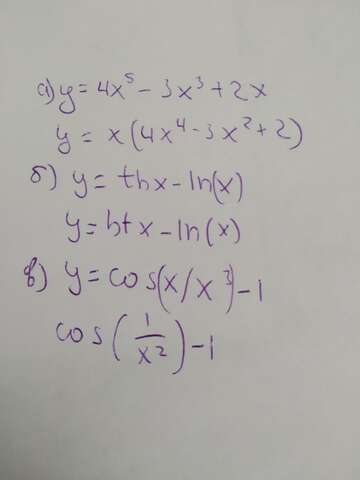 а) y = 4x⁵ - 3x³ + 2x
y = x(4x⁴ - 3x² + 2)
б) y = thx - ln(x)
y = htx - ln(x)
в) y = cos(x/x³) - 1
cos(1/x²) - 1